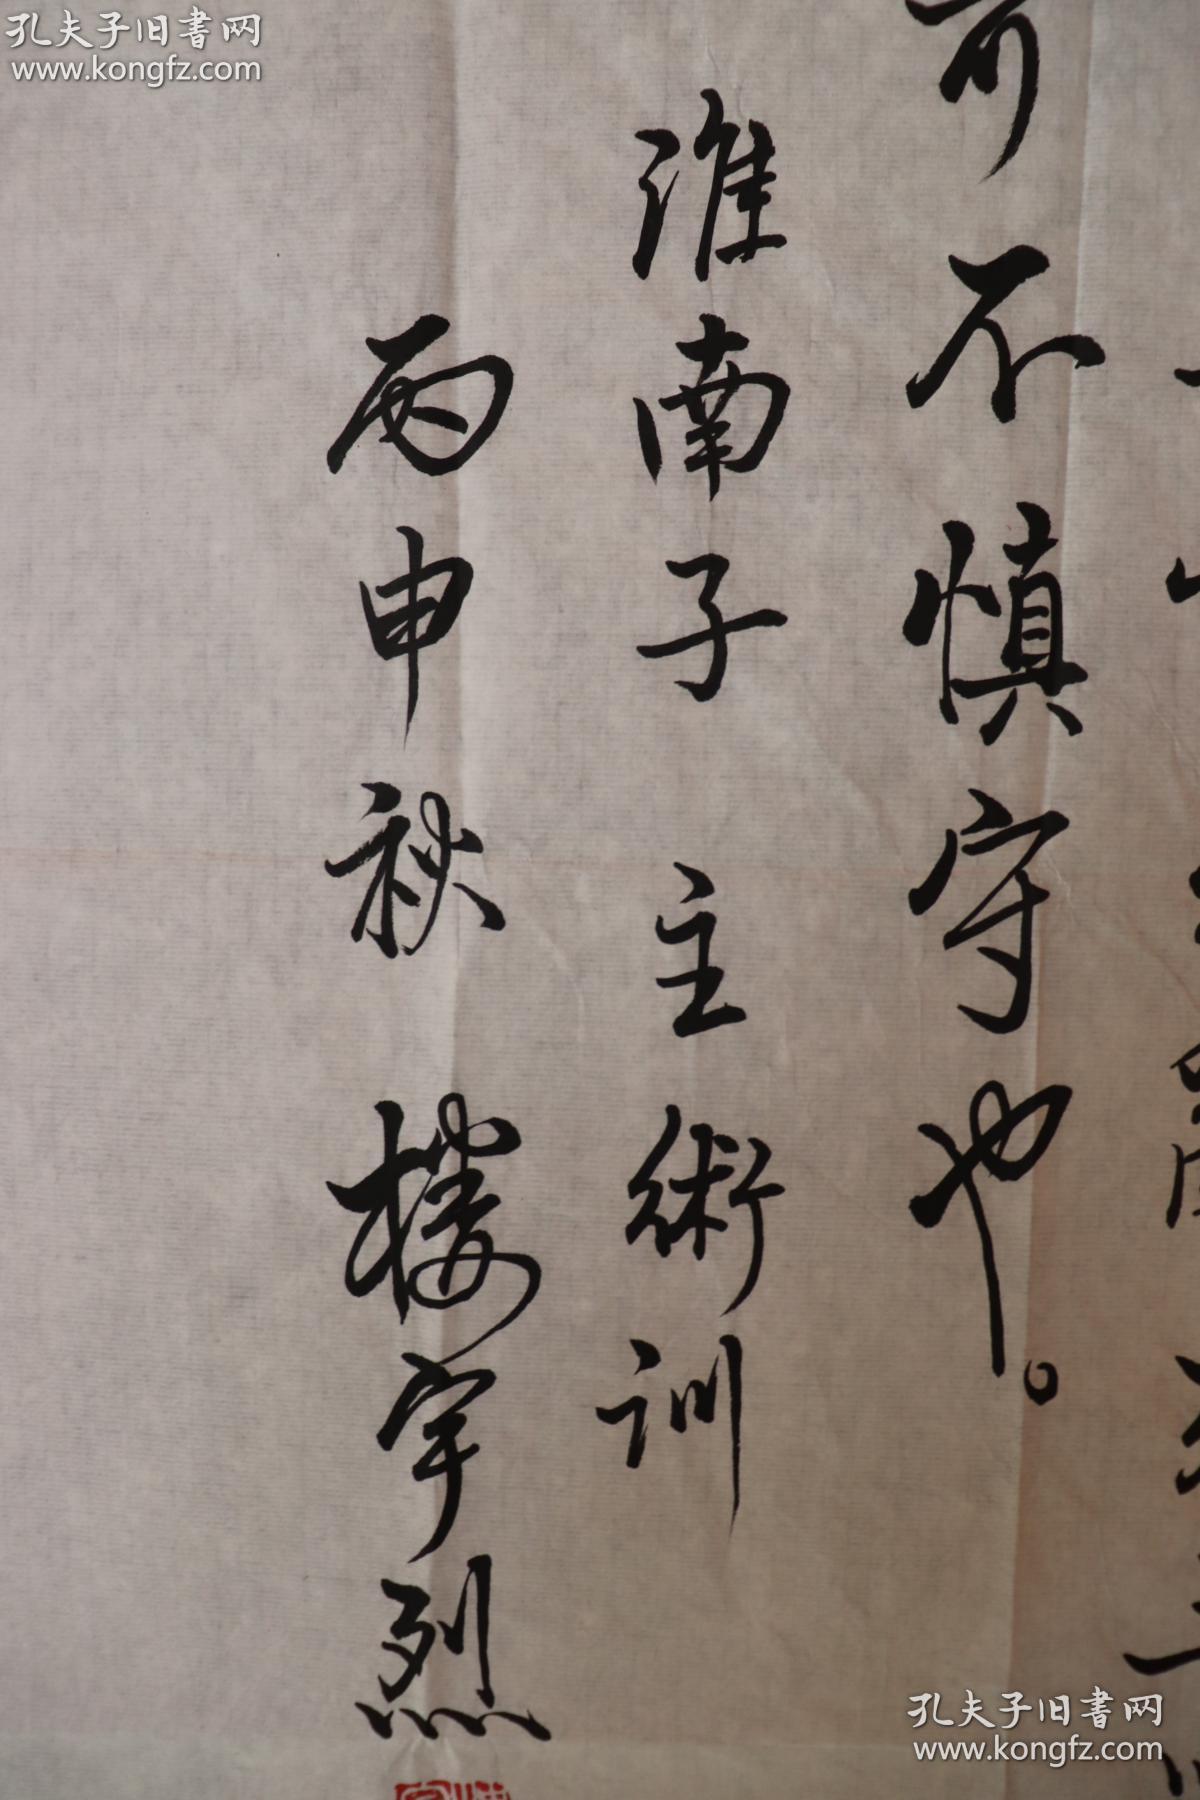 孔夫子旧書网
www.kongfz.com
可不慎守也。
淮南子 主術訓
丙申秋 楼宇烈
孔夫子旧書网
www.kongfz.com